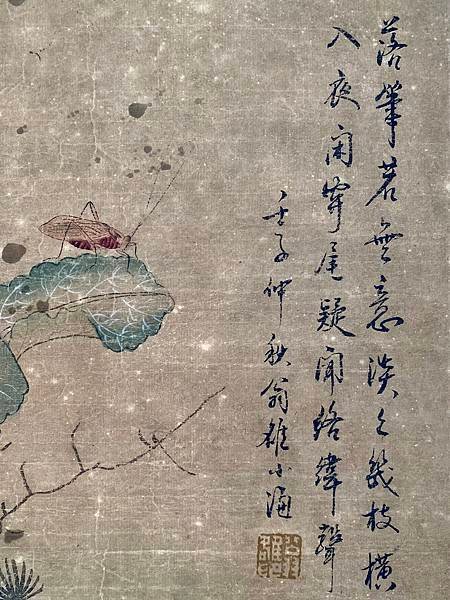 落筆若無意淡々幾枝橫
入夜閑窗尾疑聞絡緯聲
壬子仲秋翁雒小海